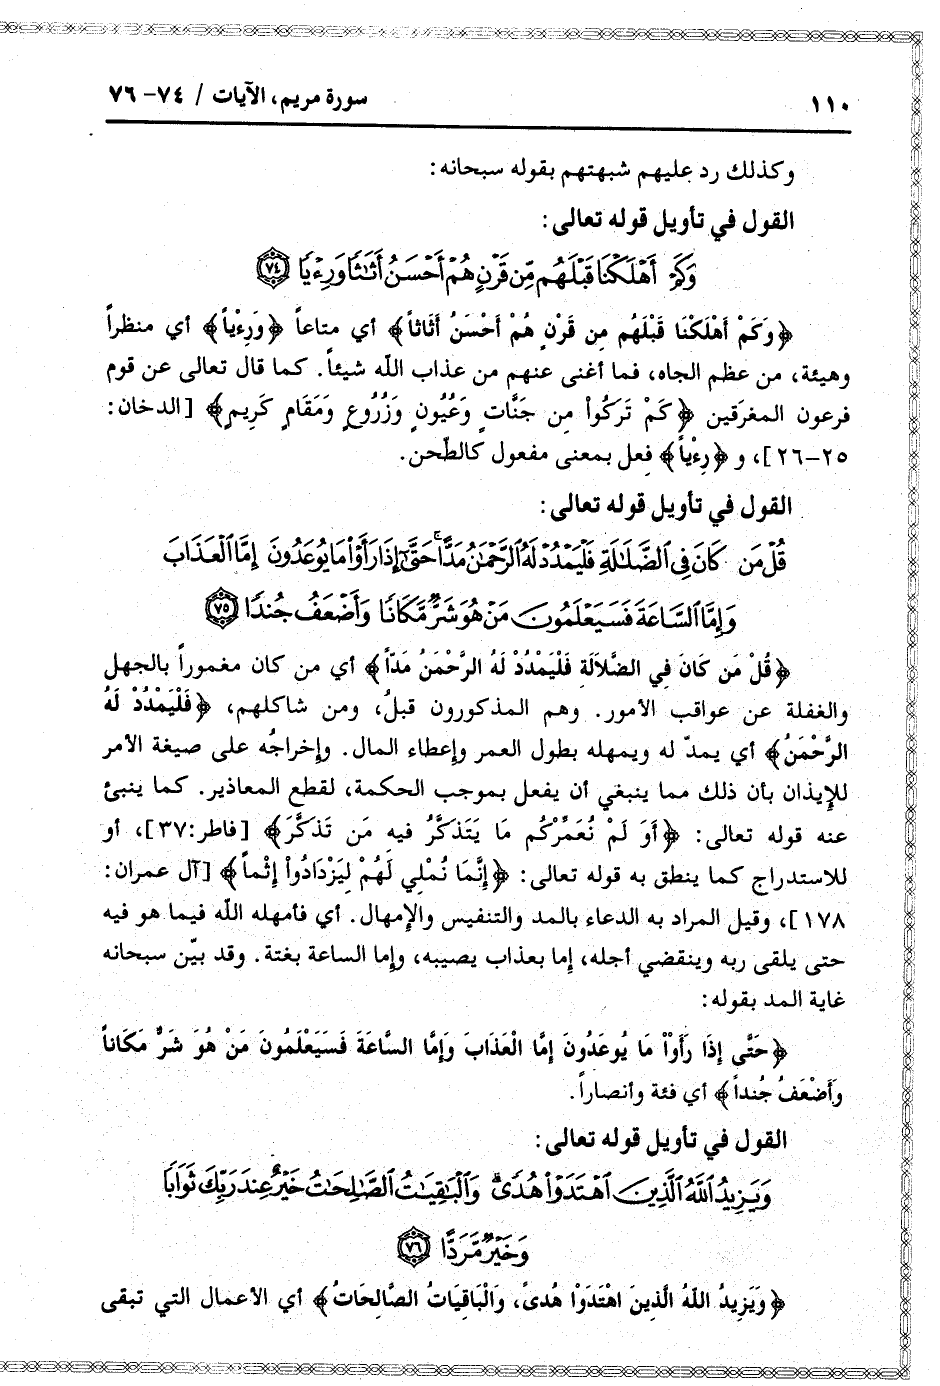 ١١٠ سورة مريم، الآيات / ٧٤- ٧٦
وكذلك رد عليهم شبهتهم بقوله سبحانه:
القول في تأويل قوله تعالى:
وَكَمْ أَهْلَكْنَا قَبْلَهُم مِّن قَرْنٍ هُمْ أَحْسَنُ أَثَاثًا وَرِءْيًا ٧٤
﴿وَكَمْ أَهْلَكْنَا قَبْلَهُم مِن قَرْنٍ هُمْ أَحْسَنُ أَثَاثاً﴾ أي متاعاً ﴿وَرِءْياً﴾ أي منظراً
وهيئة، من عظم الجاه، فما أغنى عنهم من عذاب اللّه شيئاً. كما قال تعالى عن قوم
فرعون المغرَقين ﴿كَمْ تَرَكُواْ مِن جَنَّاتٍ وَعُيُونٍ وَزُرُوعٍ وَمَقَامٍ كَرِيمٍ﴾ [الدخان:
٢٥-٢٦]، و ﴿رِءْياً﴾ فعل بمعنى مفعول كالطّحن.
القول في تأويل قوله تعالى:
قُلْ مَن كَانَ فِي الضَّلَالَةِ فَلْيَمْدُدْ لَهُ الرَّحْمَٰنُ مَدًّا ۚ حَتَّىٰ إِذَا رَأَوْا مَا يُوعَدُونَ إِمَّا الْعَذَابَ
وَإِمَّا السَّاعَةَ فَسَيَعْلَمُونَ مَنْ هُوَ شَرٌّ مَّكَانًا وَأَضْعَفُ جُندًا ٧٥
﴿قُلْ مَن كَانَ فِي الضَّلَالَةِ فَلْيَمْدُدْ لَهُ الرَّحْمَنُ مَدّاً﴾ أي من كان مغموراً بالجهل
والغفلة عن عواقب الأمور. وهم المذكورون قبلُ، ومن شاكلهم، ﴿فَلْيَمْدُدْ لَهُ
الرَّحْمَنُ﴾ أي يمدّ له ويمهله بطول العمر وإعطاء المال. وإخراجُه على صيغة الأمر
للإيذان بأن ذلك مما ينبغي أن يفعل بموجب الحكمة، لقطع المعاذير. كما ينبئ
عنه قوله تعالى: ﴿أَوَ لَمْ نُعَمِّرْكُم مَا يَتَذَكَّرُ فِيهِ مَن تَذَكَّرَ﴾ [فاطر:٣٧]، أو
للاستدراج كما ينطق به قوله تعالى: ﴿إِنَّمَا نُمْلِي لَهُمْ لِيَزْدَادُواْ إِثْماً﴾ [آل عمران:
١٧٨]، وقيل المراد به الدعاء بالمد والتنفيس والإمهال. أي فأمهله اللّه فيما هو فيه
حتى يلقى ربه وينقضي أجله، إما بعذاب يصيبه، وإما الساعة بغتة. وقد بيّن سبحانه
غاية المد بقوله:
﴿حَتَّى إِذَا رَأَوْاْ مَا يُوعَدُونَ إِمَّا الْعَذَابَ وَإِمَّا السَّاعَةَ فَسَيَعْلَمُونَ مَنْ هُوَ شَرٌّ مَكَاناً
وَأَضْعَفُ جُنداً﴾ أي فئة وأنصاراً.
القول في تأويل قوله تعالى:
وَيَزِيدُ اللَّهُ الَّذِينَ اهْتَدَوْا هُدًى ۗ وَالْبَاقِيَاتُ الصَّالِحَاتُ خَيْرٌ عِندَ رَبِّكَ ثَوَابًا
وَخَيْرٌ مَّرَدًّا ٧٦
﴿وَيَزِيدُ اللهُ الَّذِينَ اهْتَدَوْا هُدىً، وَالْبَاقِيَاتُ الصَّالِحَاتُ﴾ أي الأعمال التي تبقى